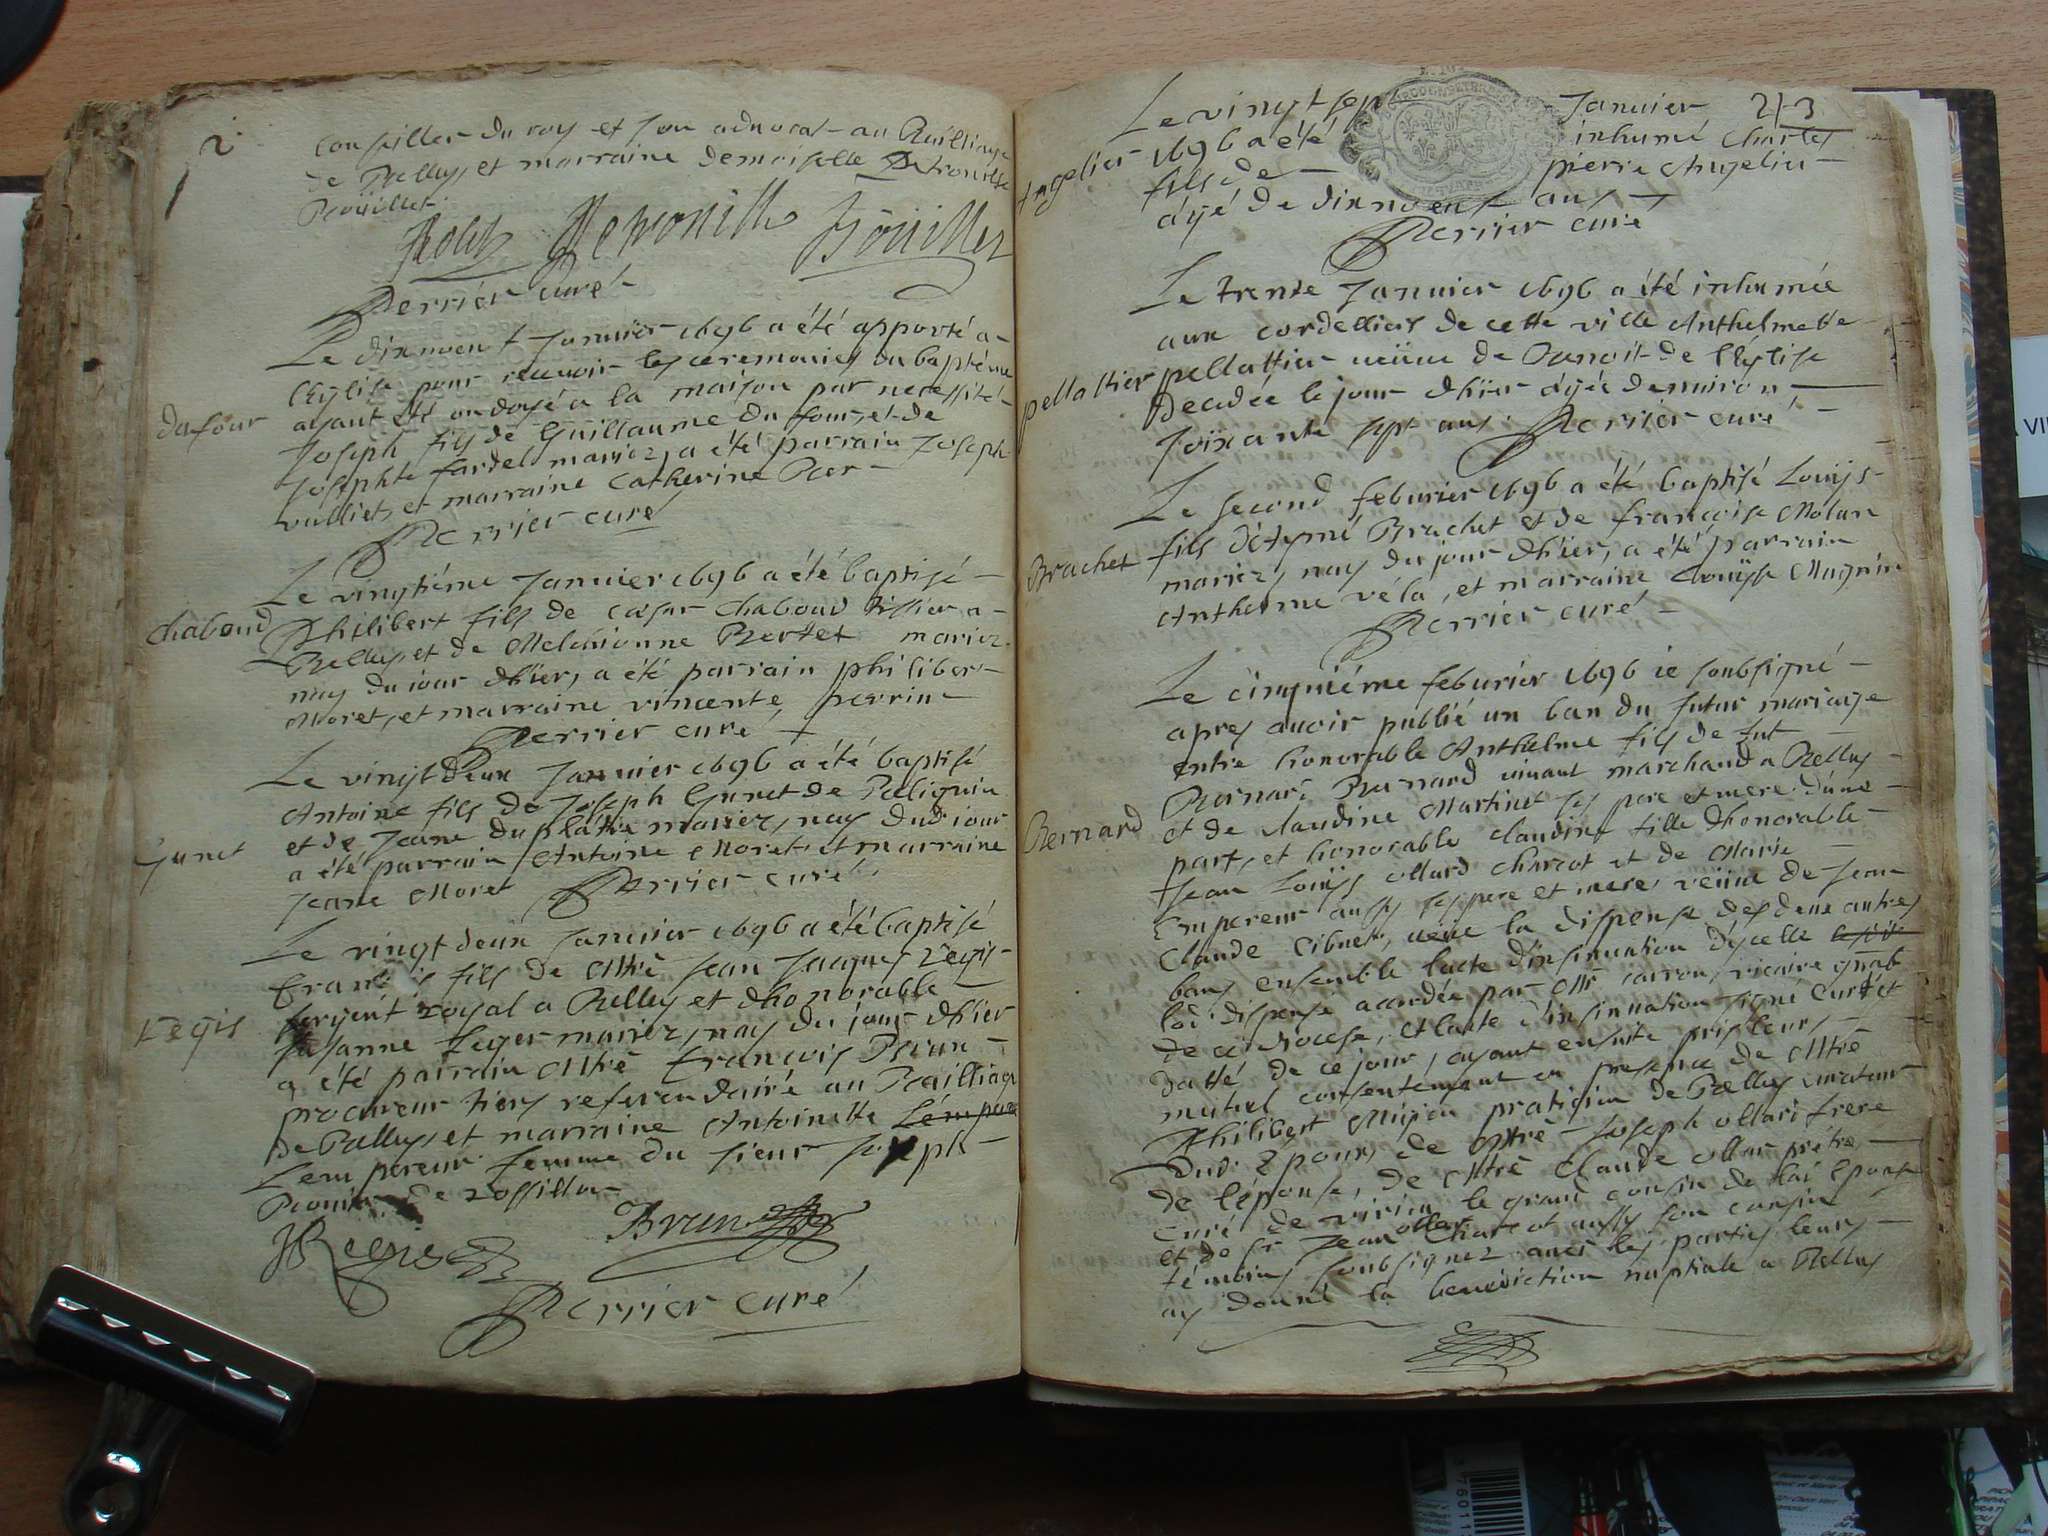 2
conseiller du roy et son advocat au Bailliage
de Belley, et marraine demoiselle
Bouillet
Bouillet
Perrier curé
Le dixneuf Januier 1696 a été apporté a
l'Eglise pour receuoir les ceremonies du baptéme
dufour
ayant été ondoyé a la maison par necessité
Joseph fils de Guillaume du four, et de
Josephte fardel mariez, a été parrain Joseph
vulliet, et marraine Catherine Ber
Perrier curé
Le vingtiéme Januier 1696 a été baptisé
Chaboud
Philibert fils de cæsar Chaboud tissier a
Belley, et de Melchionne Bertet mariez
nay du iour d'hier, a été parrain philiber
Moret, et marraine vincente perrin
Perrier curé
Le vingt deux Januier 1696 a été baptisé
Antoine fils de Joseph Gunet de Balignin
Gunet
et de Jeane du platre mariez, nay dud iour
a été parrain Antoine Moret et marraine
Jeane Moret Perrier curé
Le vingt deux Januier 1696 a été baptisé
françois fils de Mtre Jean Jacques Regis
Regis
sergent royal a Belley et d'honorable
susanne mariez, nay du iour d'hier
a été parrain Mtre françois Brun
procureur tiers referendaire au Bailliage
de Belley, et marraine Antoinette Lempere
Lempereur femme du sieur Joseph
de rossillon
JRegis Brun
Perrier curé
Le vingt sept Januier 2/3
Angelier
1696 a été inhumé Charles
fils de pierre Angelier
agé de dixneuf ans
Perrier curé
Le trente Januier 1696 a été inhumée
aux cordelliers de cette ville Anthelmette
pellattier
pellattier veüue de Benoit de l'Eglise
decedée le jour d'hier agée d'enuiron
soixante sept ans Perrier curé
Le second feburier 1696 a été baptisé Louys
Brachet
fils d'Aymé Brachet et de françoise Molan
mariez, nay du jour d'hier, a été parrain
Anthelme véla, et marraine Louyse Magnin
Perrier curé
Le cinquiéme feburier 1696 ie soubsigné
apres auoir publié un ban du futur mariage
entre honorable Anthelme fils de fut
Bernard Bernard viuant marchand a Belley
Bernard
et de claudine Martinet ses pere et mere d'une
part, et honorable claudine fille d'honorable
Jean Louys ollard Charcot et de Marie
Empereur aussy ses pere et mere, veüue de Jean
Claude Cibuet, veüe la dispense des deux autres
bans ensemble l'acte d'insinuation d'icelle
lad. dispense acordée par Mr carron vicaire gñal
de ce diocese, et l'acte d'insinuation signé
datté de ce jour, ayant ensuite pris leur
mutuel consentement en presence de Mtre
Philibert Migieu praticien de Belley curateur
dud. Epoux, de Mtre Joseph ollard frere
de l'épouse, de Mtre Claude ollar prétre
curé de virieu le grand cousin de lad. Epouse
et de Sr Jean ollar Charcot aussy son cousin
témoins soubsignez auec les parties leurs
ay donné la benediction nuptiale a Belley